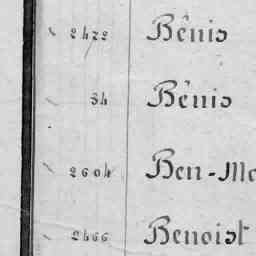 2422 Bênis
84 Bênis
2604 Ben-Me
2466 Benoist